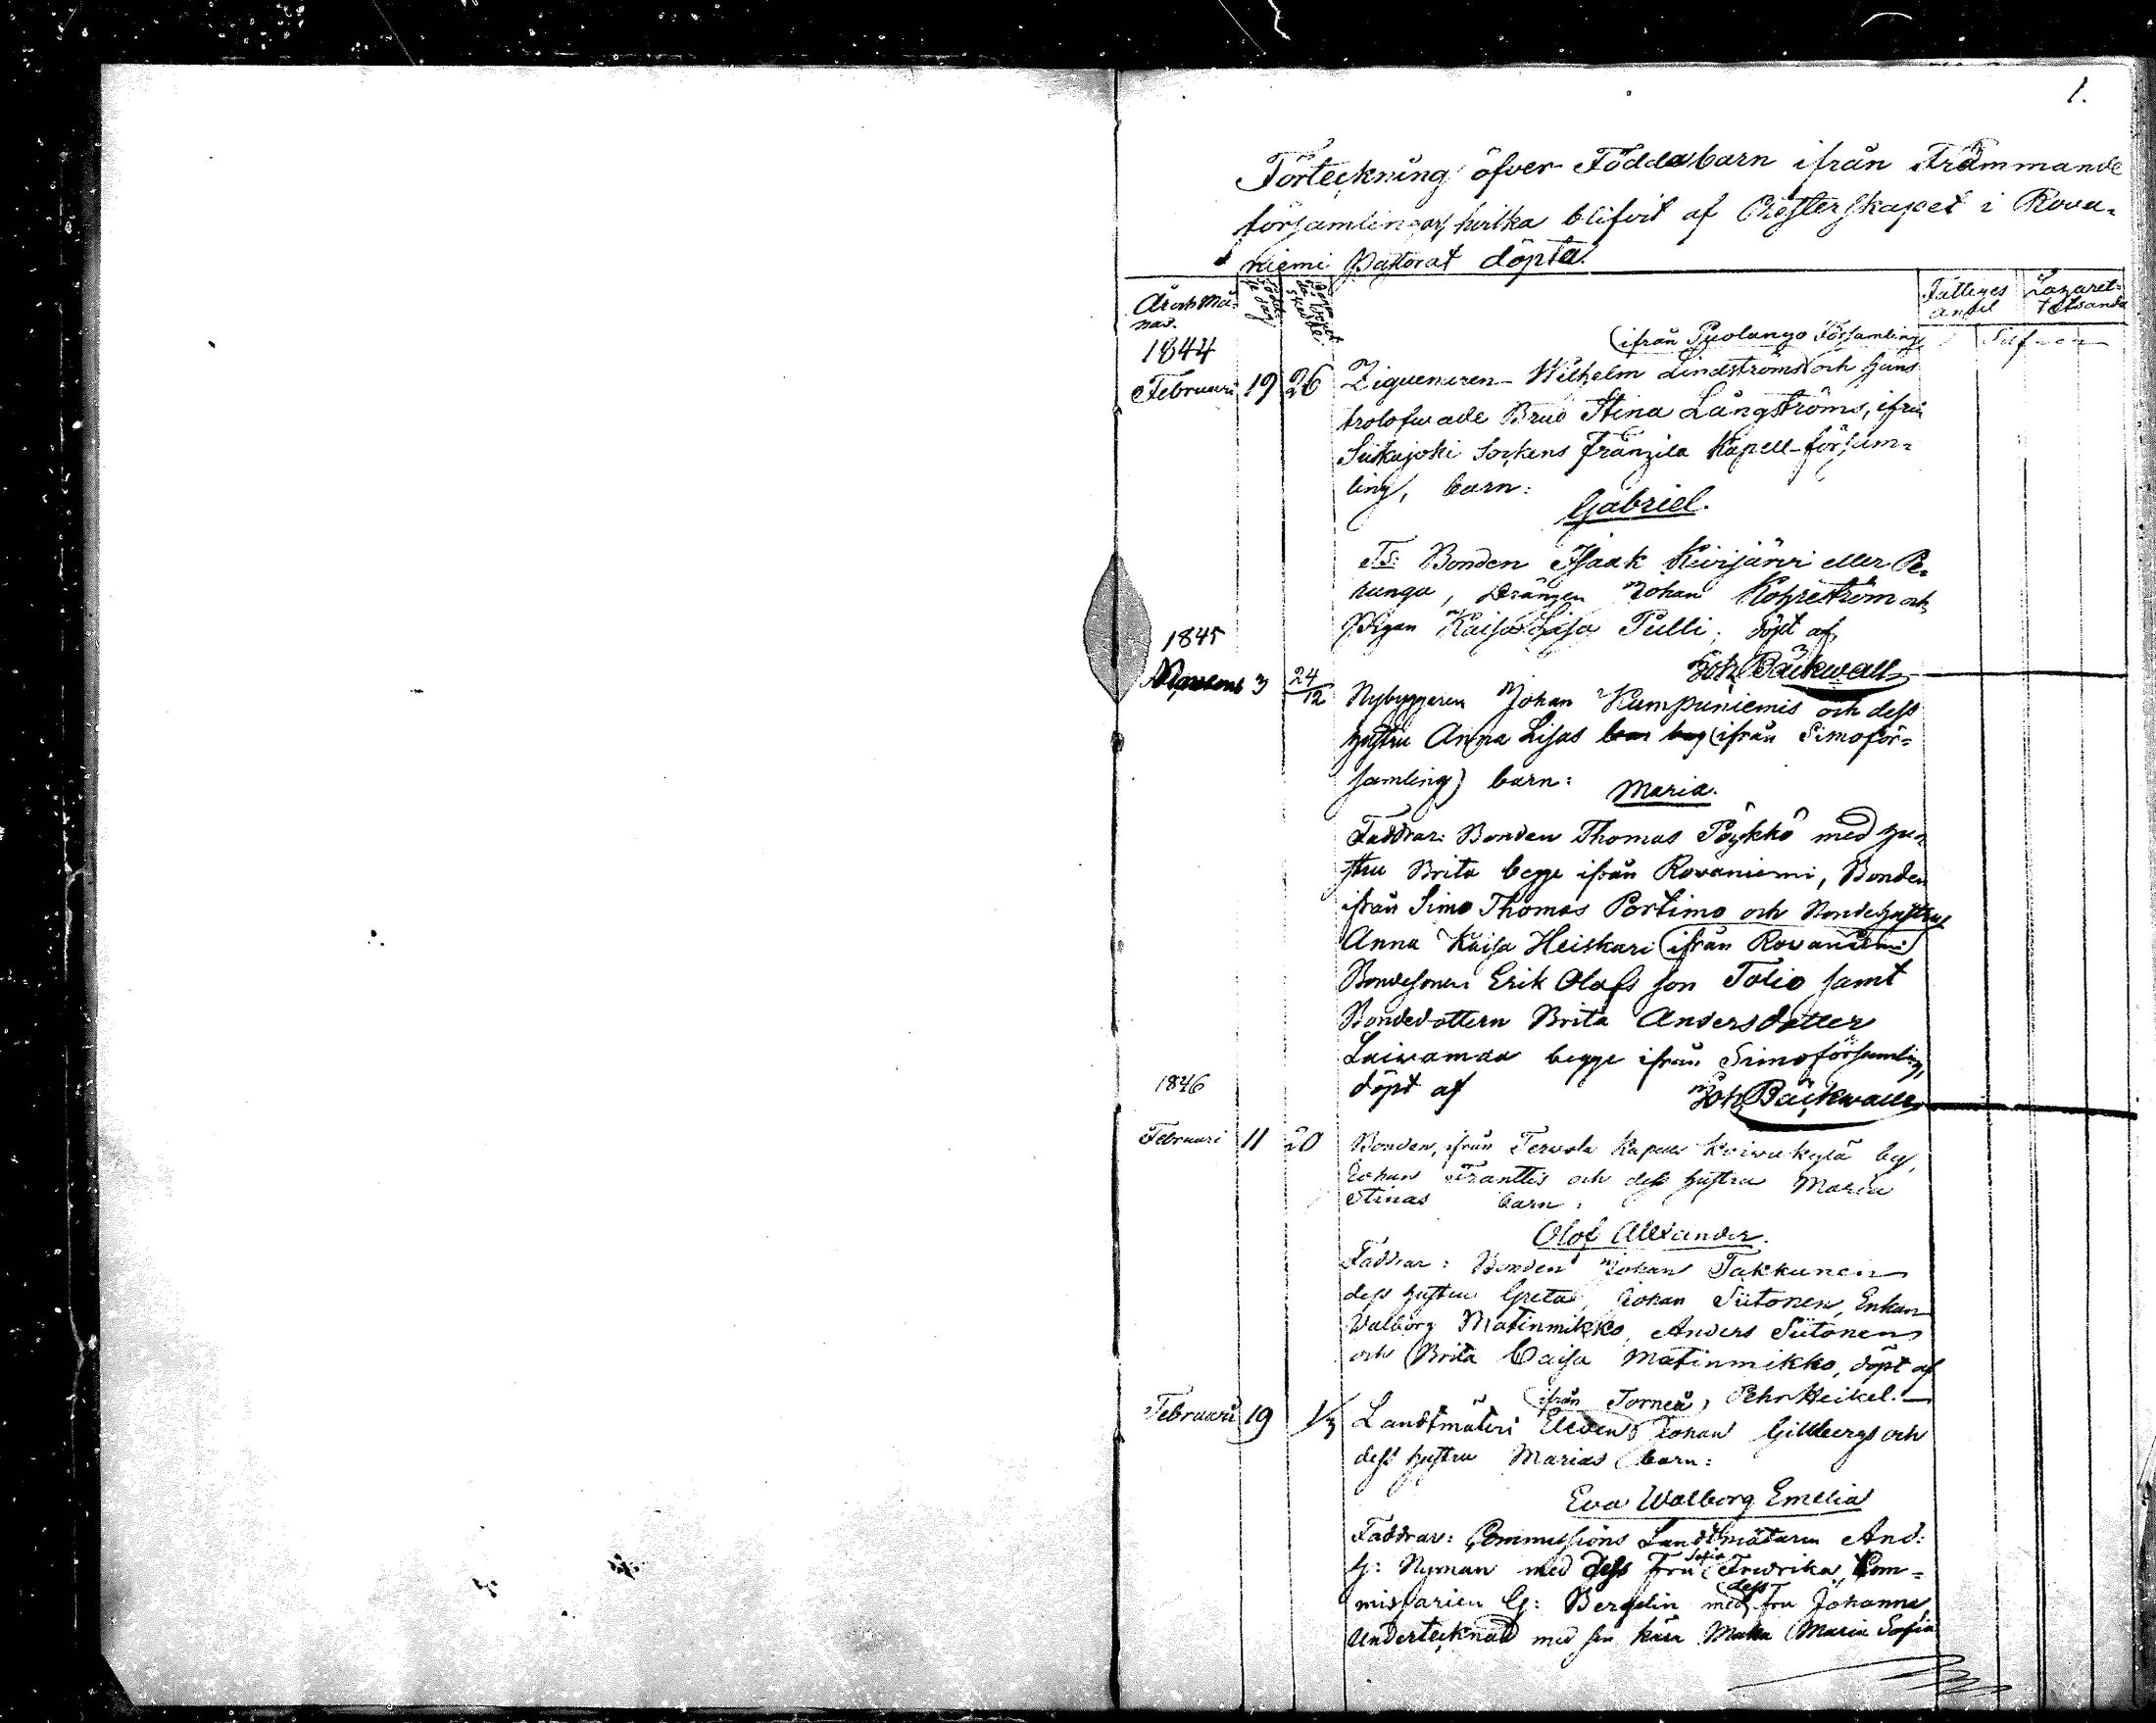 1.
Förteckning öfver Födda barn ifrån Främmande
församlingar, hvilka blifvit af Presterskapet i Rova-
niemi Pastorat döpta.
År och Må-
nad.
Fattiges
andel
Lazaret-
tets anda
1844
(ifrån Puolango Församling)
Februari 19 26 Ziguenaren Wilhelm Lindströms och hans
trolofvade Brud Stina Långströms, ifrån
Siikajoki Sockens Frantzila Kapell-försam-
ling, barn:
Gabriel.
Fs: Bonden Isaak Kivijärvi eller Pe-
ranga, Drängen Johan och
Pigan Kaisa Lisa Pulli; döpt af
Joh Bäckwall
1845
3 24/12 Nybyggaren Johan Kumpuniemis och dess
hustru Anna Lisas (ifrån Simoför-
samling) barn:
Maria.
Faddrar: Bonden Thomas Pöykkö med hu-
stru Brita begge ifrån Rovaniemi, Bonden
ifrån Simo Thomas Portimo och Bondehustrun
Anna Kaisa Heiskari (ifrån Rovaniemi)
Bondesonen Erik Olofs son Tolio samt
Bondedottern Brita Andersdotter
Laivamaa begge ifrån Simoförsamling,
döpt af Joh Bäckwall
1846
Februari 11 20 Bonden, ifrån Tervola Kapell Koivukylä by,
Johan Franttis och dess hustru Maria
Stinas barn:
Olof Alexander.
Faddrar: Bonden Johan Takkunen
dess hustru Greta, Johan Siitonen, Enkan
Walborg Matinmikko, Anders Siitonen
och Brita Caisa Matinmikko, döpt af
Pehr Heikel.
(ifrån Torneå)
Februari 19 1/3 Landtmäteri Eleven Johan Gillbergs och
dess hustru Marias barn:
Eva Walborg Emelia
Faddrar: Commissions Landtmätaren And:
G: Nyman med dess Fru Sofia Fredrika, Com-
missarien G: Bergelin med dess fru Johanna
Undertecknad med sin kära Maka Maria Sofia